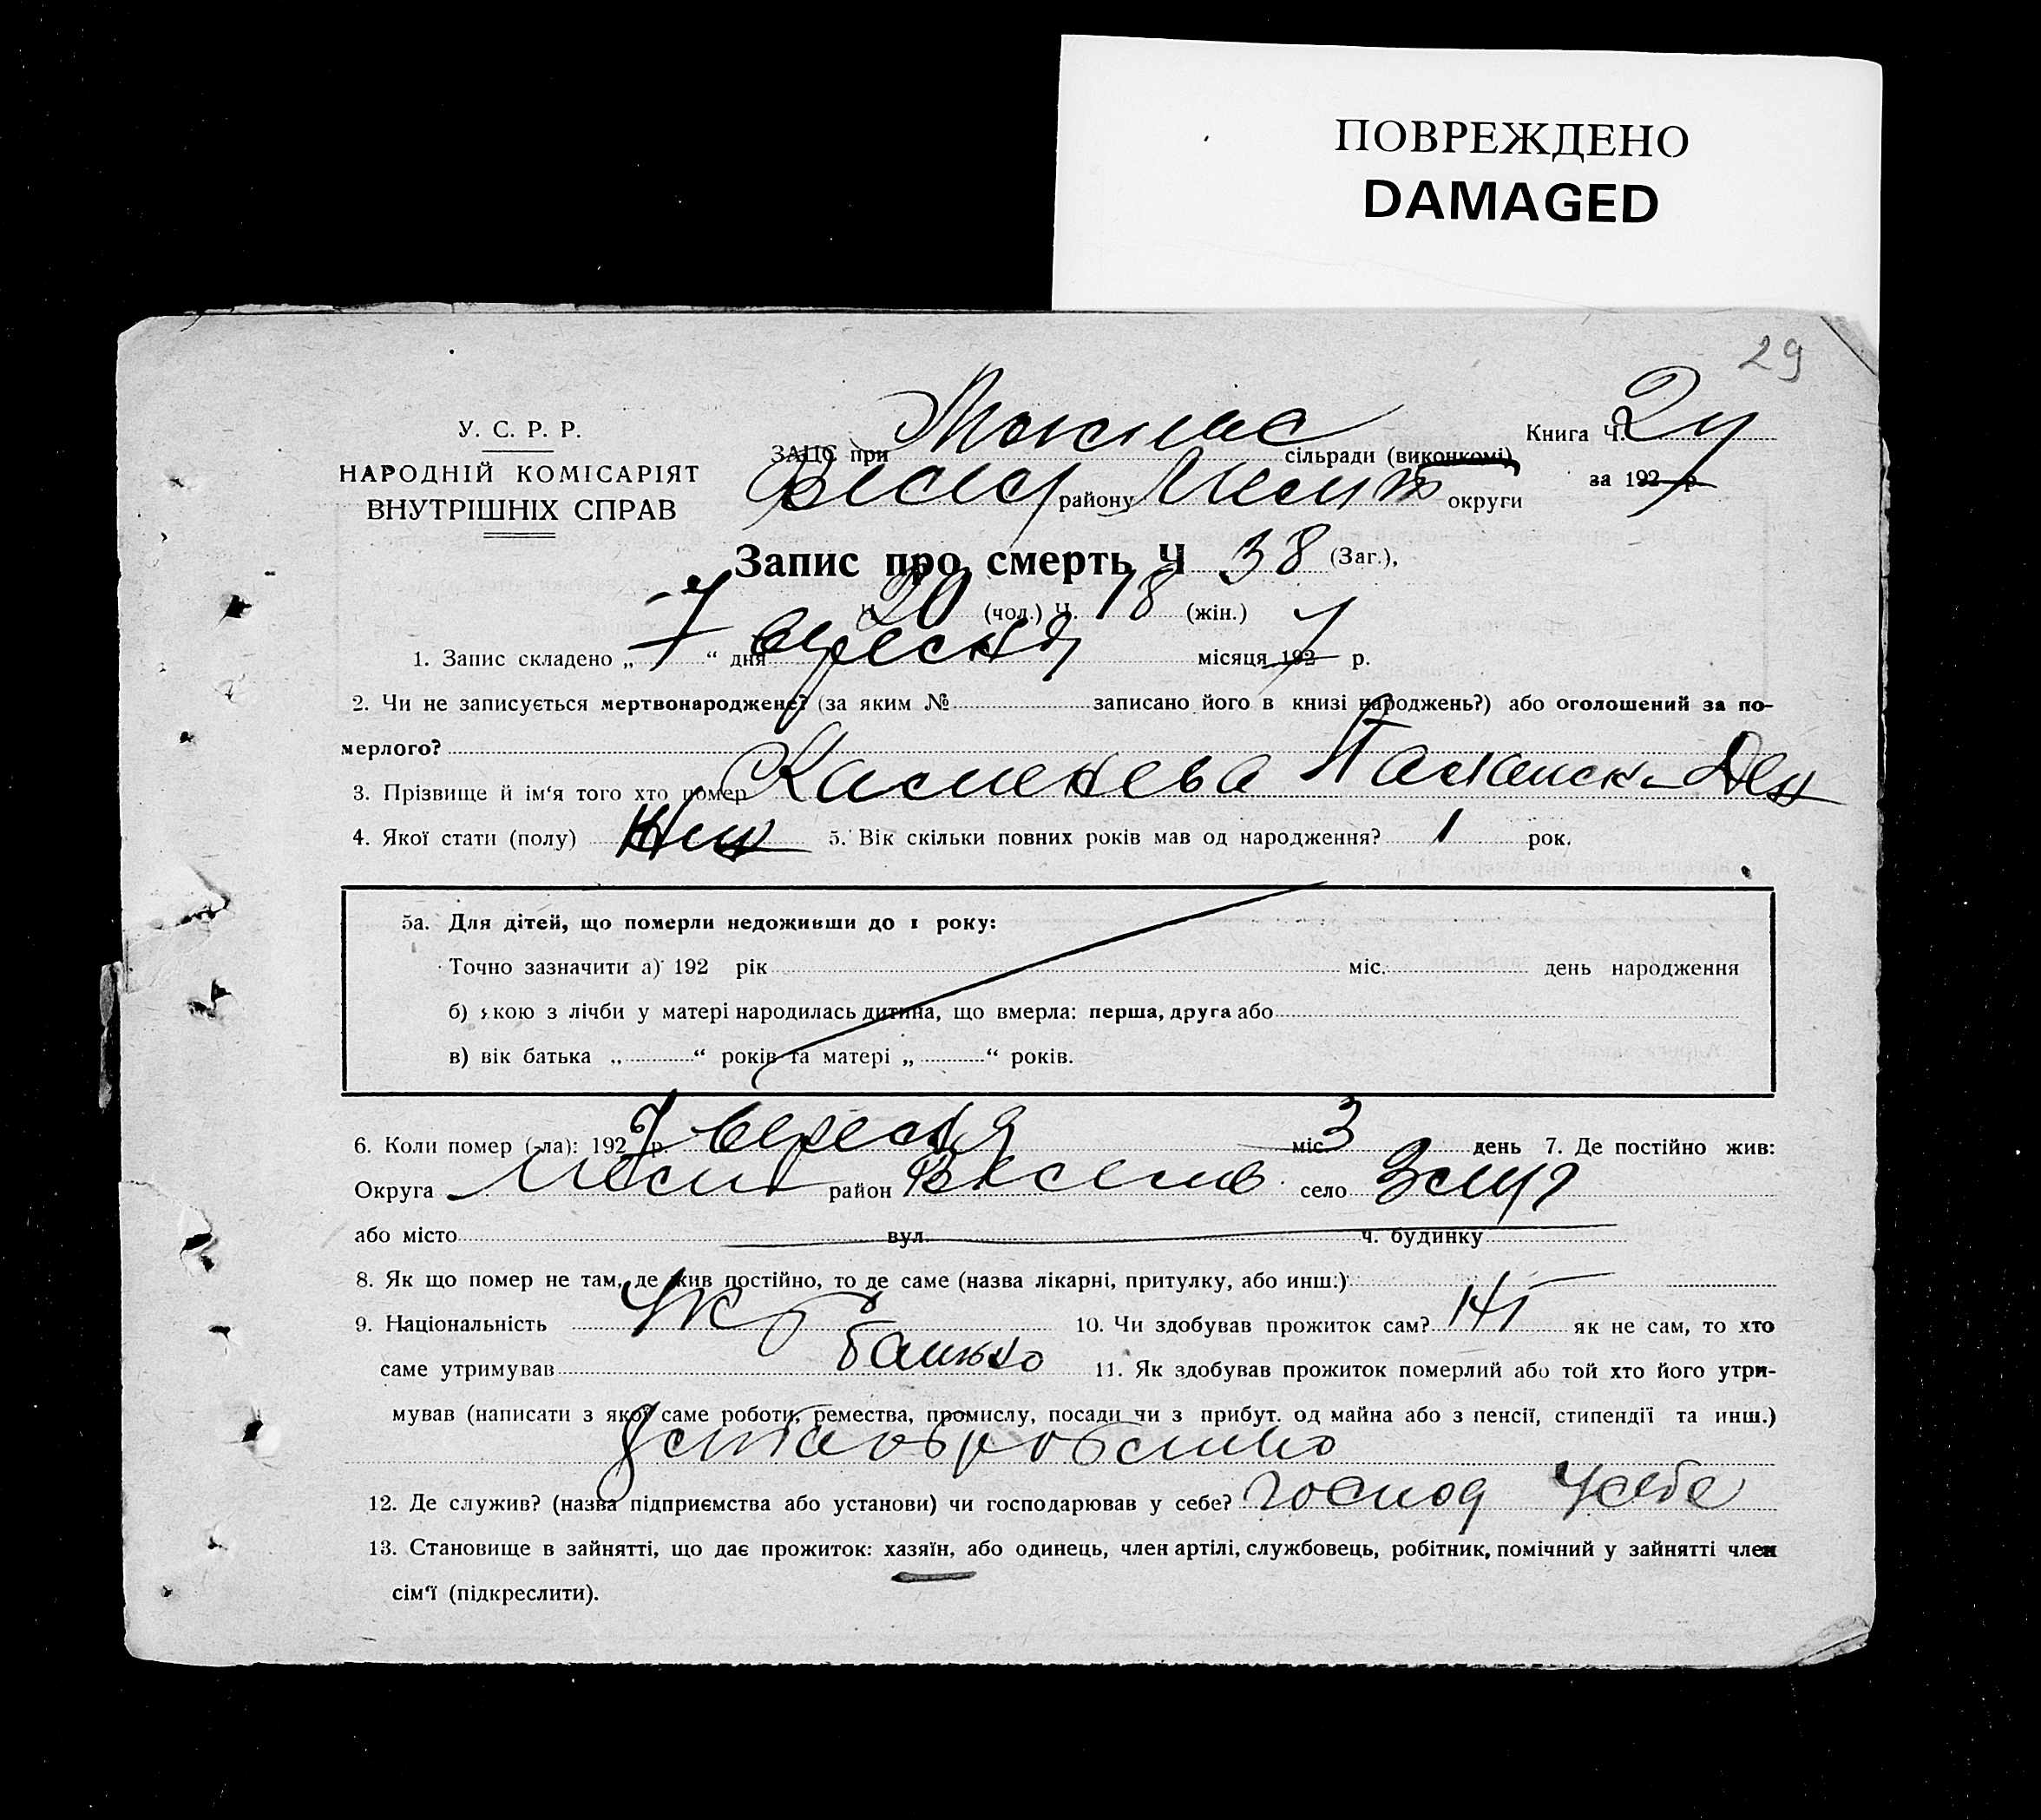 ПОВРЕЖДЕНО
DAMAGED
29
У. С. Р. Р.
НАРОДНІЙ КОМІСАРІЯТ
ВНУТРІШНІХ СПРАВ
ЗАЦС при сільради (виконкомі)
району округи
Книга Ч.
за 192 р.
Запис про смерть Ч 38 (Заг.),
Ч 20 (чол.) Ч. 18 (жін.)
1. Запис складено „ 7 “ дня вересня місяця 192 7 р.
2. Чи не записується мертвонароджене? (за яким № записано його в книзі народжень?) або оголошений за по-
мерлого?
3. Прізвище й ім‘я того хто помер
4. Якої стати (полу) 5. Вік скільки повних років мав од народження? 1 рок.
5а. Для дітей, що померли недоживши до 1 року:
Точно зазначити а) 192 рік міс. день народження
б) якою з лічби у матері народилась дитина, що вмерла: перша, друга або
в) вік батька „ “ років та матері „ “ років.
6. Коли помер (-ла): 192 р. вересня міс 3 день 7. Де постійно жив:
Округа район село
або місто вул. ч. будинку
8. Як що помер не там, де жив постійно, то де саме (назва лікарні, притулку, або инш.)
9. Національність Укр 10. Чи здобував прожиток сам? Ні як не сам, то хто
саме утримував батько 11. Як здобував прожиток померлий або той хто його утри-
мував (написати з якої саме роботи, ремества, промислу, посади чи з прибут. од майна або з пенсії, стипендії та инш.)
12. Де служив? (назва підприємства або установи) чи господарював у себе? господ у себе
13. Становище в зайнятті, що дає прожиток: хазяїн, або одинець, член артілі, службовець, робітник, помічний у зайнятті член
сім‘ї (підкреслити).